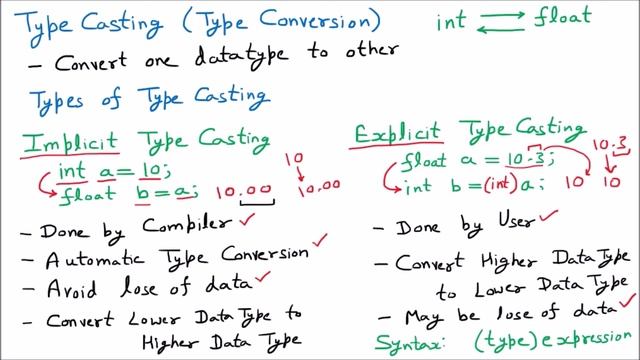 Type Casting (Type Conversion)
int ⇄ float
- Convert one datatype to other
Types of Type Casting
Implicit Type Casting
int a = 10;
float b = a; 10.00
10
10.00
- Done by Compiler ✓
- Automatic Type Conversion ✓
- Avoid lose of data ✓
- Convert Lower Data Type to
Higher Data Type
Explicit Type Casting
float a = 10.3;
int b = (int) a; 10
10.3
10
- Done by User ✓
- Convert Higher Data Type
to Lower Data Type
- May be lose of data ✓
Syntax: (type) expression